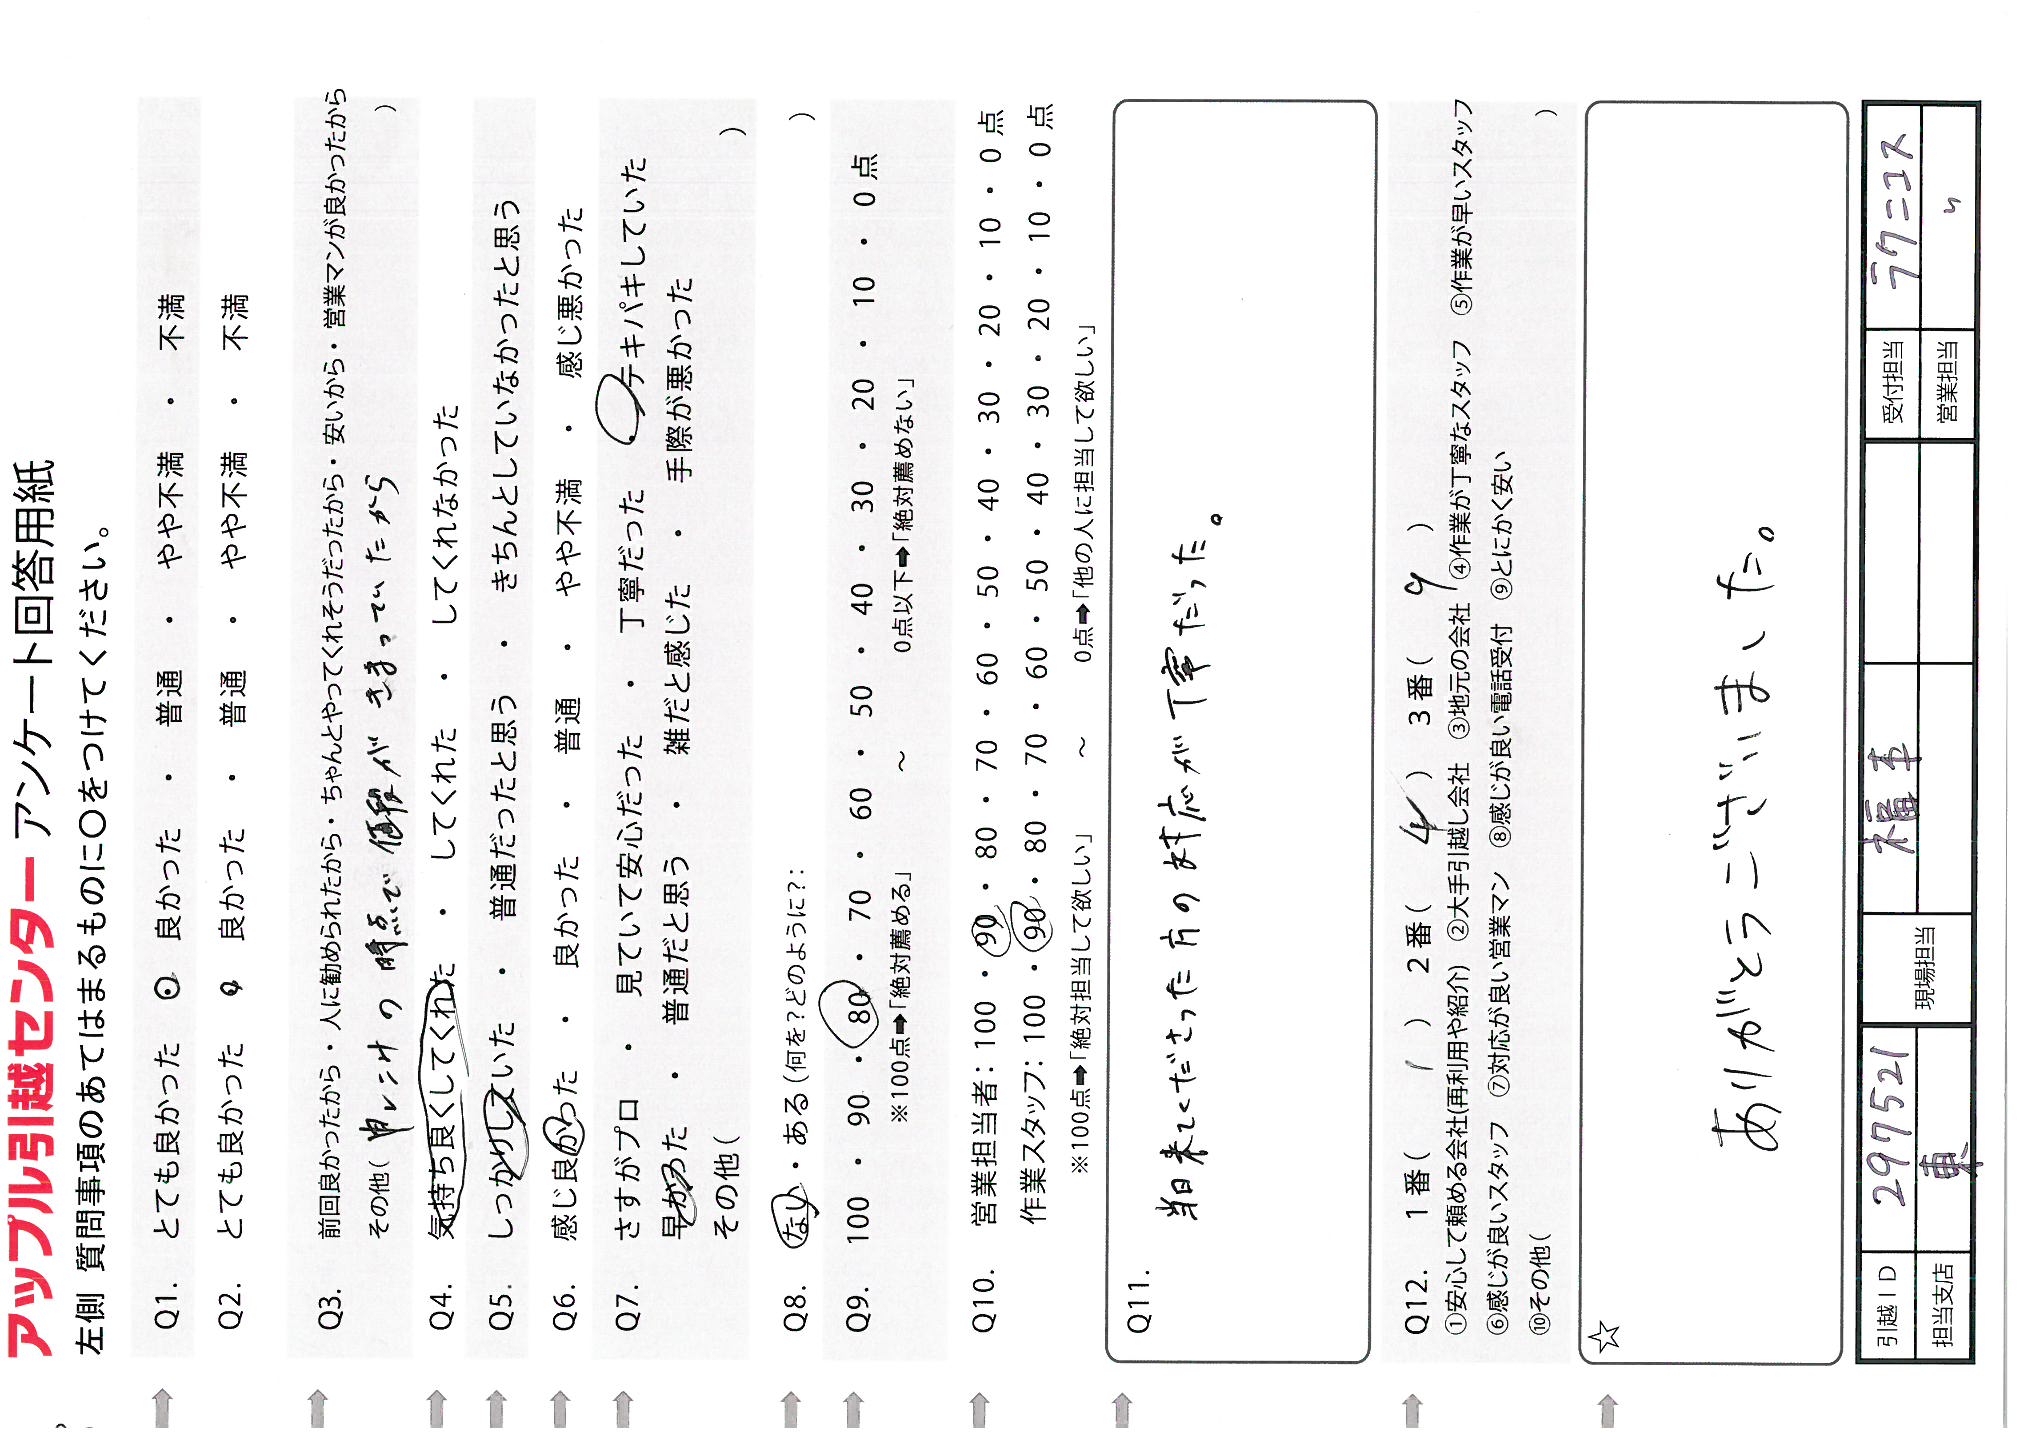 アップル引越センター アンケート回答用紙
左側 質問事項のあてはまるものに〇をつけてください。
Q1. とても良かった ・ 良かった ・ 普通 ・ やや不満 ・ 不満
Q2. とても良かった ・ 良かった ・ 普通 ・ やや不満 ・ 不満
Q3. 前回良かったから・人に勧められたから・ちゃんとやってくれそうだったから・安いから・営業マンが良かったから
その他( 申しこみの時点で値段がきまっていたから )
Q4. 気持ち良くしてくれた ・ してくれた ・ してくれなかった
Q5. しっかりしていた ・ 普通だったと思う ・ きちんとしていなかったと思う
Q6. 感じ良かった ・ 良かった ・ 普通 ・ やや不満 ・ 感じ悪かった
Q7. さすがプロ ・ 見ていて安心だった ・ 丁寧だった ・ テキパキしていた
早かった ・ 普通だと思う ・ 雑だと感じた ・ 手際が悪かった
その他( )
Q8. ない・ある(何を?どのように?: )
Q9. 100 ・ 90 ・ 80 ・ 70 ・ 60 ・ 50 ・ 40 ・ 30 ・ 20 ・ 10 ・ 0 点
※100点➡「絶対薦める」 ～ 0点以下➡「絶対薦めない」
Q10. 営業担当者：100 ・ 90 ・ 80 ・ 70 ・ 60 ・ 50 ・ 40 ・ 30 ・ 20 ・ 10 ・ 0 点
作業スタッフ：100 ・ 90 ・ 80 ・ 70 ・ 60 ・ 50 ・ 40 ・ 30 ・ 20 ・ 10 ・ 0 点
※100点➡「絶対担当して欲しい」 ～ 0点➡「他の人に担当して欲しい」
Q11.
当日来てくださった方の対応が丁寧だった。
Q12. 1番( 1 ) 2番( 4 ) 3番( 9 )
①安心して頼める会社(再利用や紹介) ②大手引越し会社 ③地元の会社 ④作業が丁寧なスタッフ ⑤作業が早いスタッフ
⑥感じが良いスタッフ ⑦対応が良い営業マン ⑧感じが良い電話受付 ⑨とにかく安い
⑩その他( )
☆
ありがとうございました。
引越ID 297521 現場担当 福本 受付担当 ラクニコス
担当支店 東 営業担当 〃